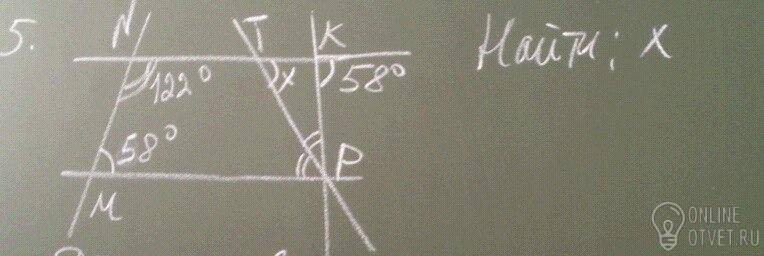 5. N T K Найти: x
122° x 58°
58° P
M
ONLINE
OTVET.RU